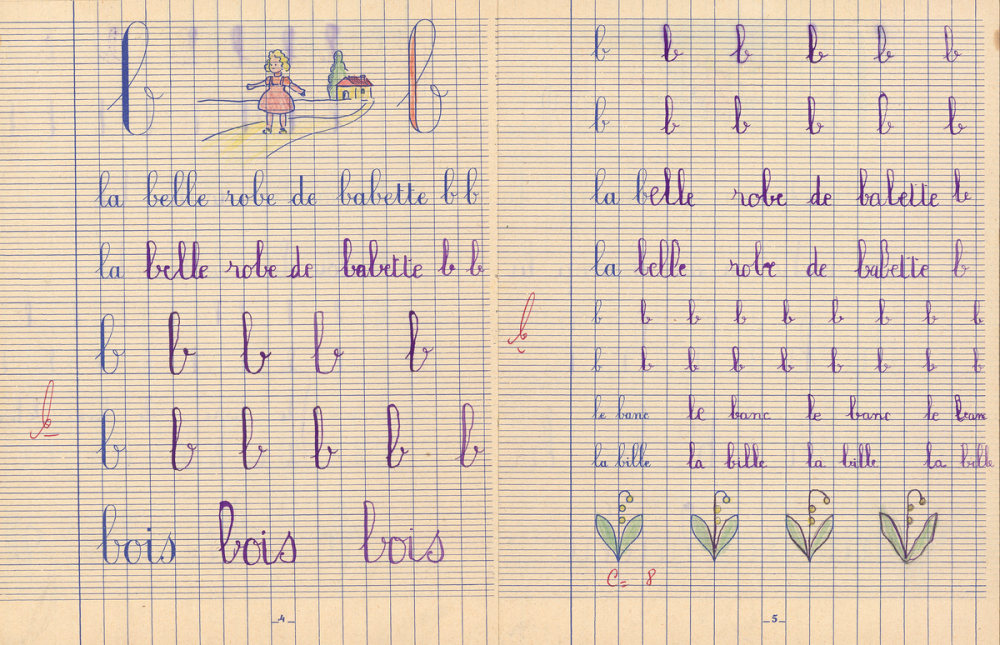 b b
la belle robe de babette b b
la belle robe de babette b b
b b b b b
b
b b b b b b
bois bois bois
4
b b b b b b
b b b b b b
la belle robe de babette b
la belle robe de babette b
b b b b b b b b b
b
b b b b b b b b b
le banc le banc le banc le banc
la bille la bille la bille la bille
C= 8
5